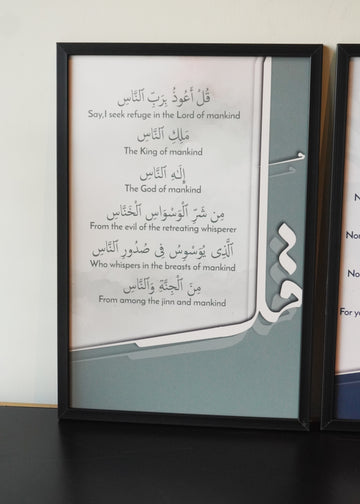 قُلْ أَعُوذُ بِرَبِّ ٱلنَّاسِ
Say,I seek refuge in the Lord of mankind
مَلِكِ ٱلنَّاسِ
The King of mankind
إِلَـٰهِ ٱلنَّاسِ
The God of mankind
مِن شَرِّ ٱلْوَسْوَاسِ ٱلْخَنَّاسِ
From the evil of the retreating whisperer
ٱلَّذِى يُوَسْوِسُ فِى صُدُورِ ٱلنَّاسِ
Who whispers in the breasts of mankind
مِنَ ٱلْجِنَّةِ وَٱلنَّاسِ
From among the jinn and mankind
قل
For